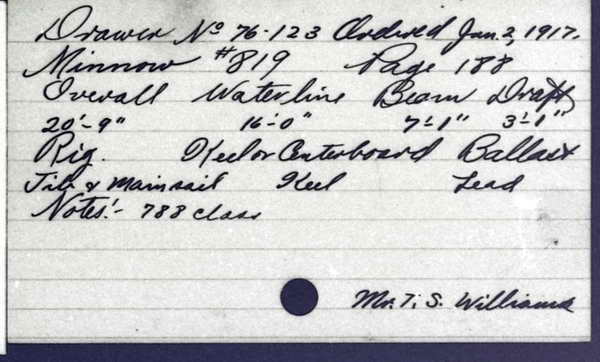 Drawer No 76-123 Ordered Jan. 2, 1917.
Minnow #819 Page 188
Overall Waterline Beam Draft
20'-9" 16'-0" 7'-1" 3'-1"
Rig. Keel or Centerboard Ballast
Jib & Mainsail Keel Lead
Notes:- 788 class
Mr. T. S. Williams